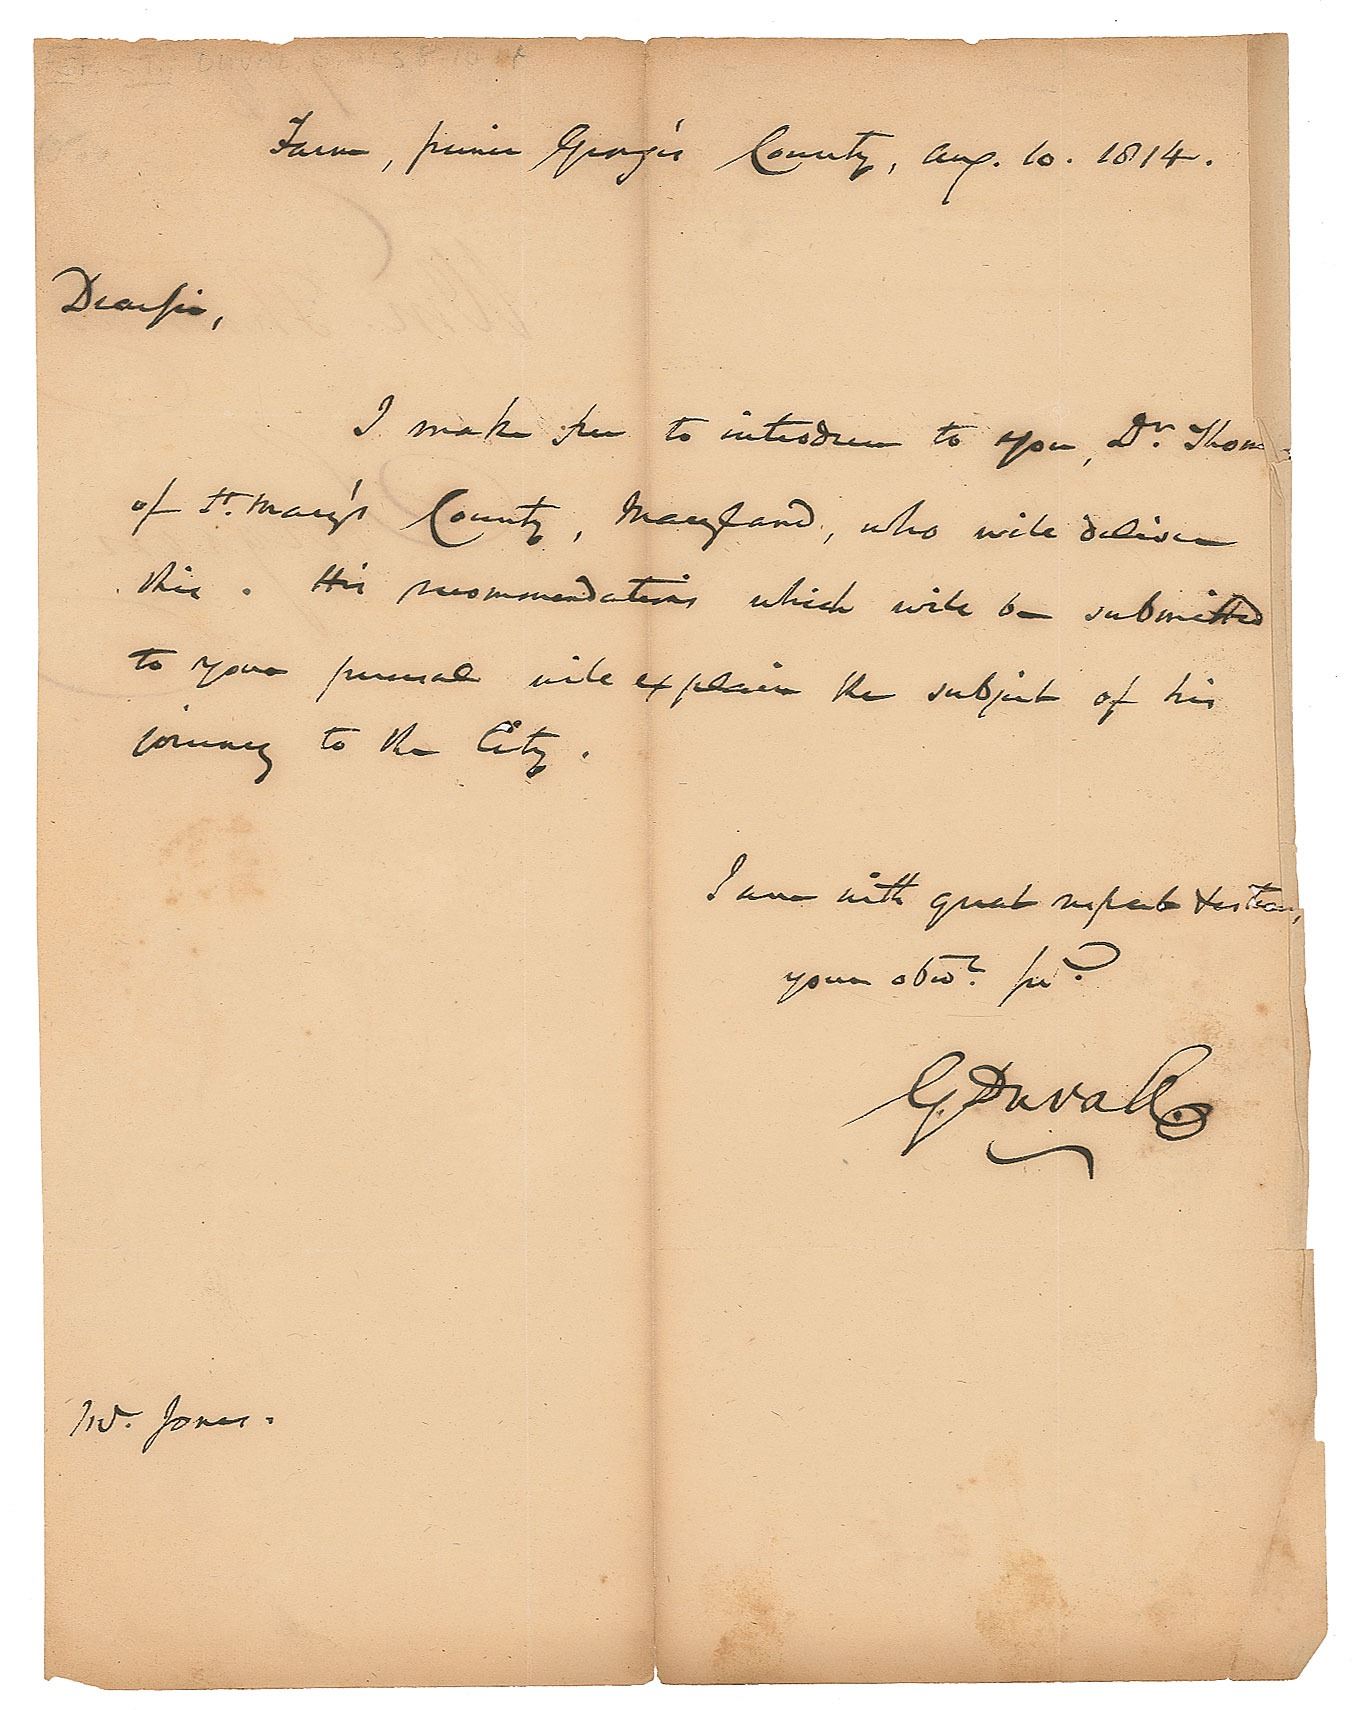 Farm, prince George's County, Aug. 10. 1814.
Dear sir,
I make free to introduce to you, Dr. Thom
of St. Mary's County, Maryland, who will deliver
this. His recommendations which will be submitted
to your perusal will explain the subject of his
journey to the City.
I am with great respect & esteem,
your obdt. sert.
G. Duvall.
Mr. Jones.